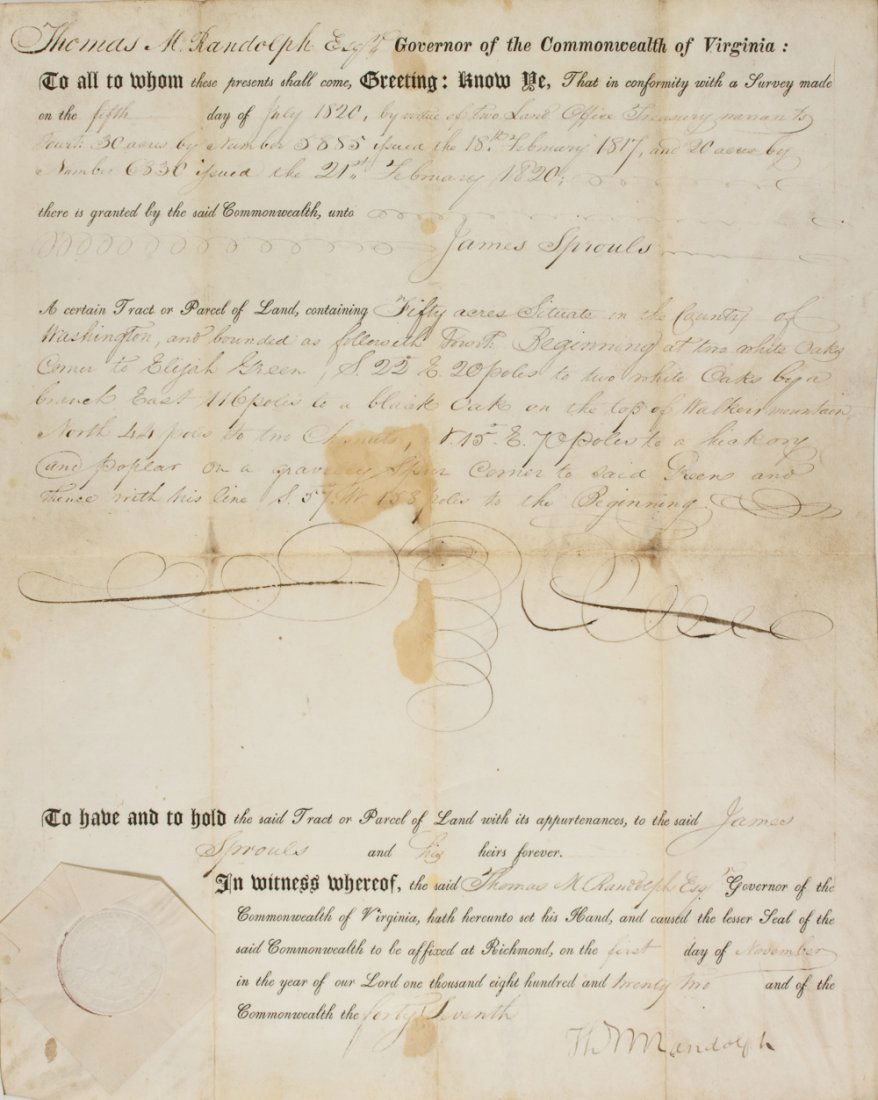 Thomas M. Randolph Esqr. Governor of the Commonwealth of Virginia:
To all to whom these presents shall come, Greeting: Know Ye, That in conformity with a Survey made
on the fifth day of July 1820, by virtue of two Land Office Treasury warrants
towit: 30 acres by Number 5885 issued the 18th. February 1817, and 20 acres by
Number 6830 issued the 21st. February 1820;
there is granted by the said Commonwealth, unto
James Sprouls
A certain Tract or Parcel of Land, containing Fifty acres Situate in the County of
Washington, and bounded as followeth Towit: Beginning at two white Oaks
Corner to Elijah Green, S. 22 E. 20 poles to two white Oaks by a
branch East 116 poles to a black Oak on the top of Walkers mountain
North 44 poles to two Chesnuts, N. 15 E. 70 poles to a hickory
and poplar on a gravelley Spur Corner to said Green and
thence with his line S. 57 W. 158 poles to the Beginning
To have and to hold the said Tract or Parcel of Land with its appurtenances, to the said James
Sprouls and his heirs forever.
In witness whereof, the said Thomas M. Randolph Esqr. Governor of the
Commonwealth of Virginia, hath hereunto set his Hand, and caused the lesser Seal of the
said Commonwealth to be affixed at Richmond, on the first day of November
in the year of our Lord one thousand eight hundred and twenty two and of the
Commonwealth the forty Seventh
Th M Randolph